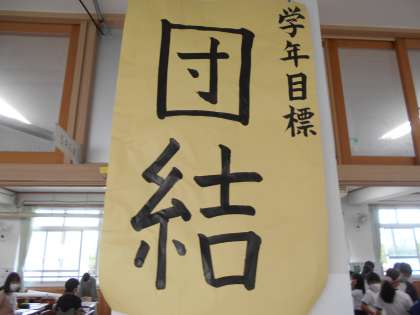 学年目標
団結